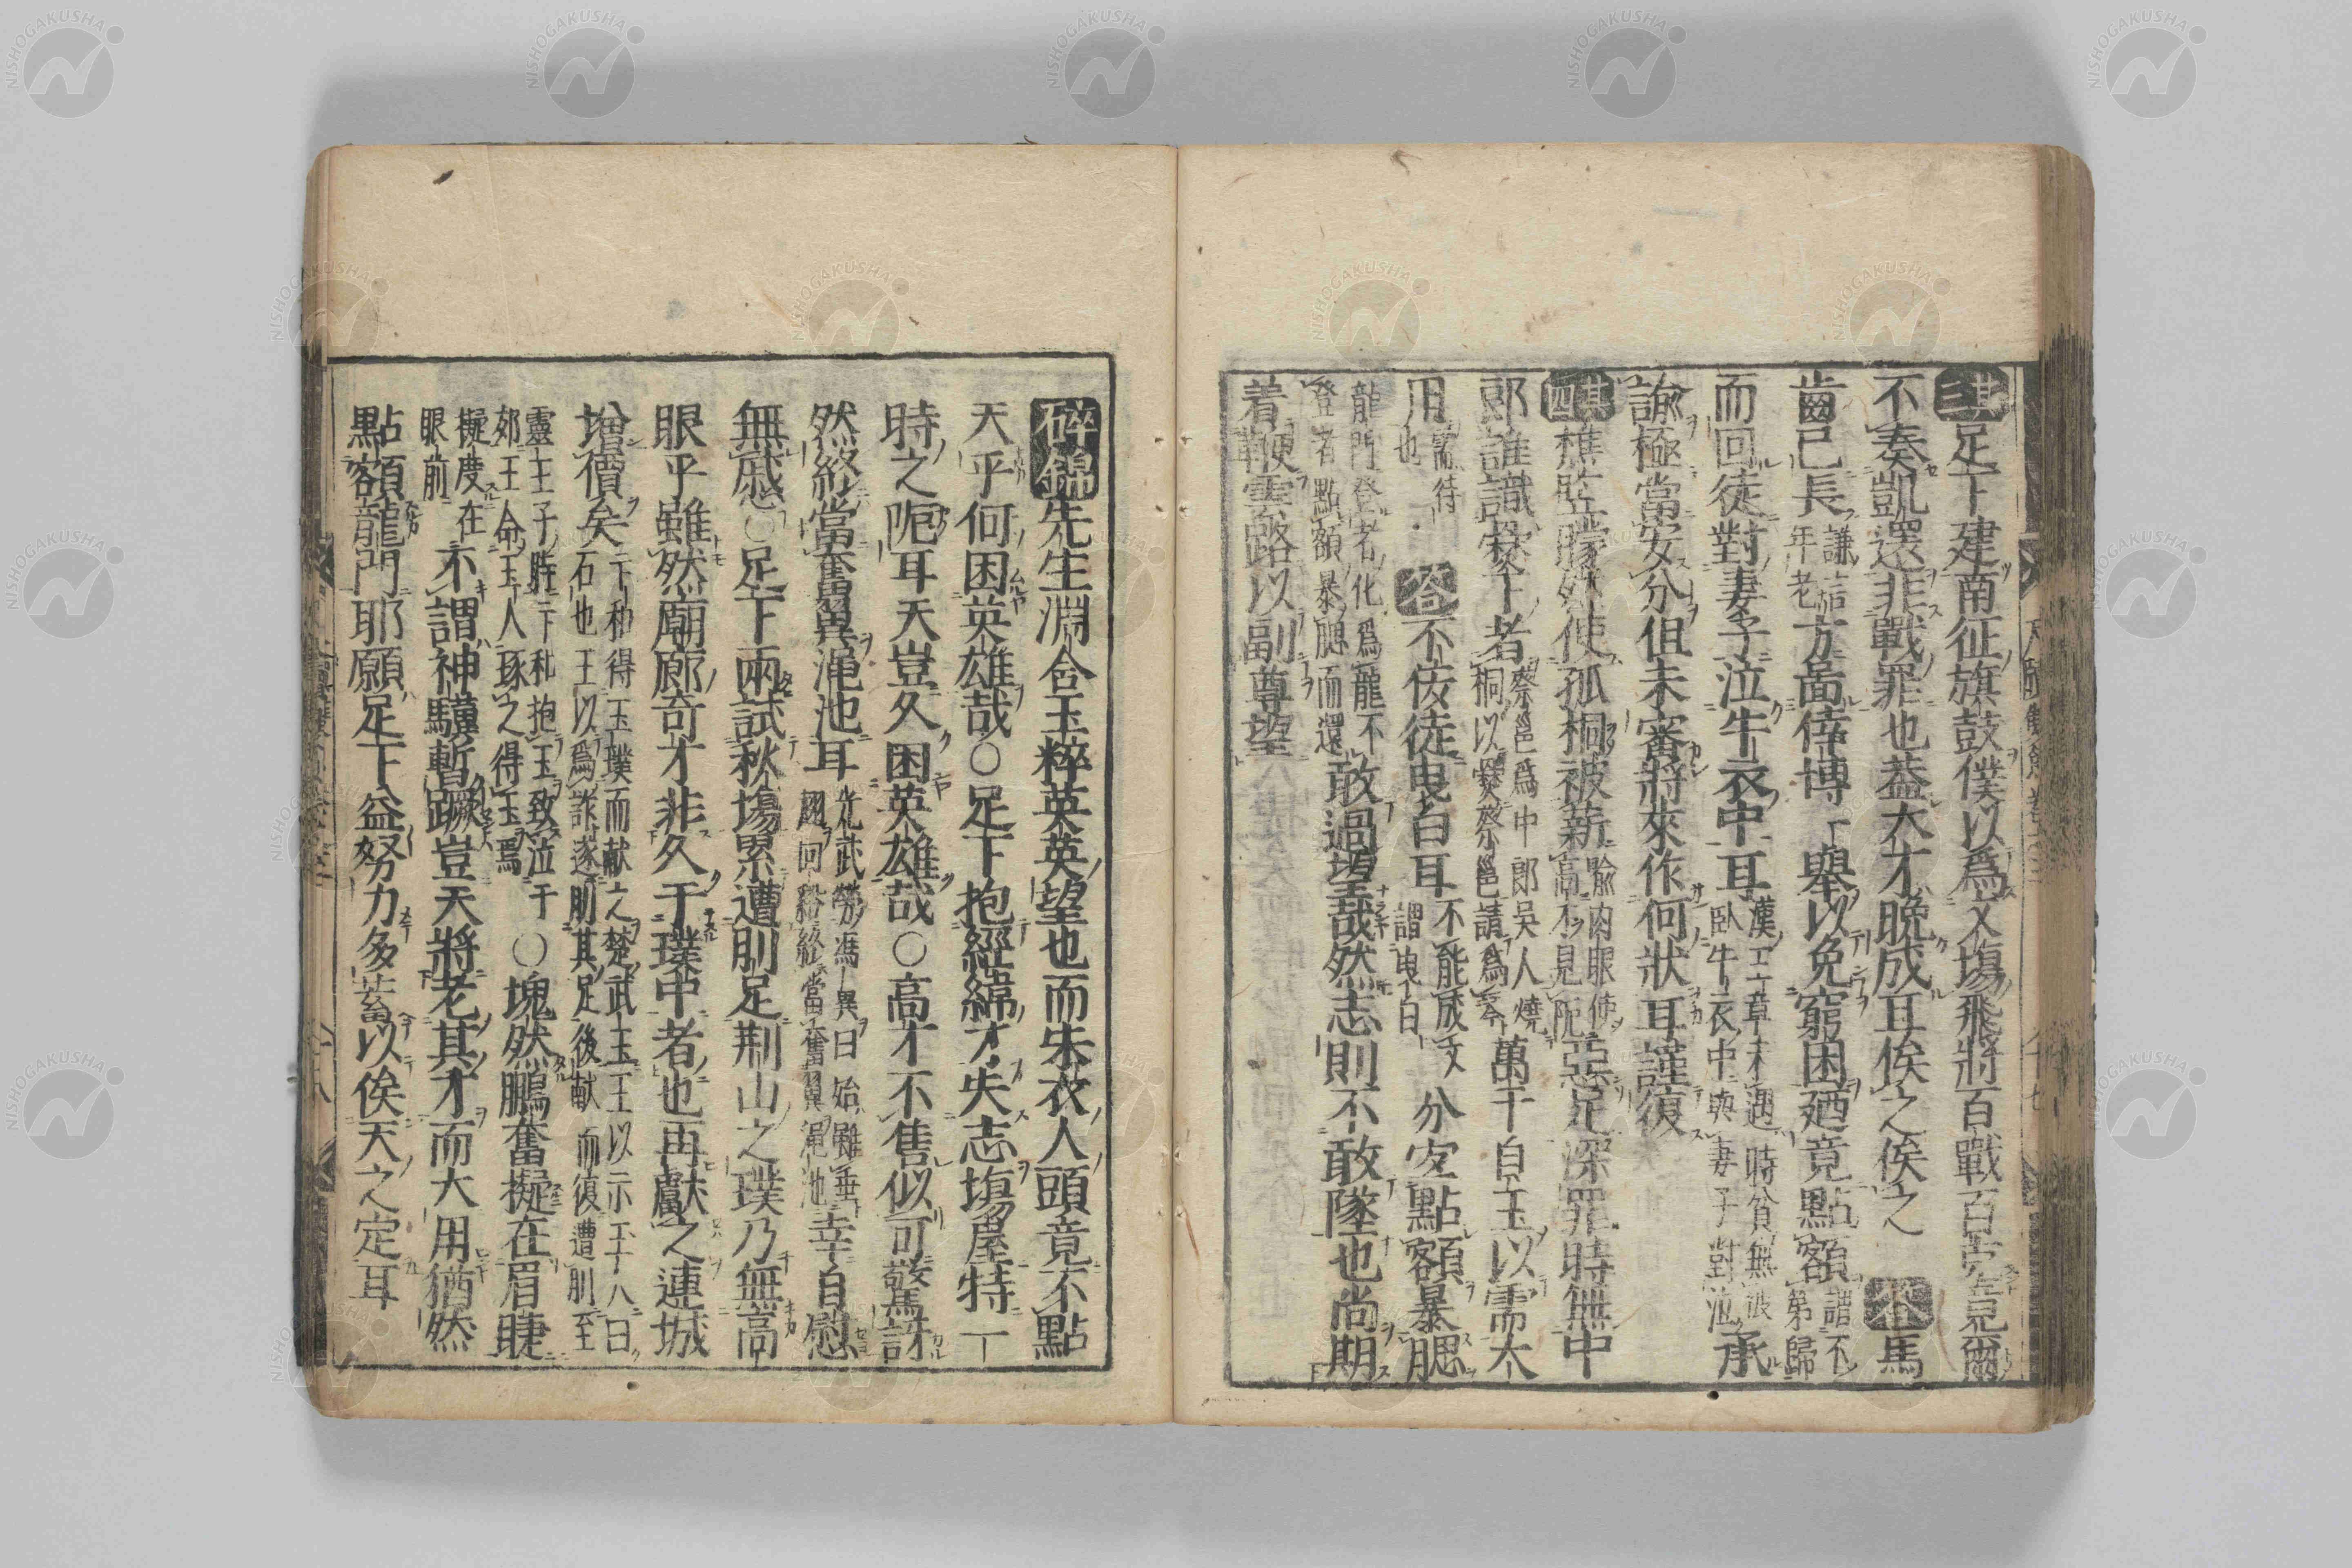 其三足下建南征旗鼓僕以爲文塲飛將百戰百克竟爾
不奏凱還非戰罪也葢大才晩成耳俟之俟之 答馬
齒已長謙言年老方啚倖博一擧以免窮困廼竟點額謂不第歸
而回徒對妻子泣牛衣中耳漢王章未遇時貧無被臥牛衣中與妻子對泣承
諭極當安分但未審將來作何狀耳謹復
其四樵監朦然使孤桐被薪喩肉眼使高不見阨惡足深罪時無中
郎誰識爨下者蔡邕爲中郎吳人燒桐以爨蔡邕請爲琴萬千自玉以需大
用需待也 答不佞徒曳白耳不能成文謂曳白分宐點額暴腮
龍門登者化爲龍不登者點額暴腮而還敢過望哉然志則不敢墜也尚期
着鞭雲路以副尊望
碎錦先生淵含玉粹英英望也而朱衣人頭竟不點
天乎何困英雄哉○足下抱經綿才失志塲屋特一
時之阨耳天豈久困英雄哉○高才不售似可驚訝
然終當奮翼澠池耳光武勞馮異曰始雖垂翅回谿終當奮翼澠池幸自慰
無慼○足下兩試秋塲累遭刖足荆山之璞乃無高
眼乎雖然廟廊奇才非久于璞中者也再獻之連城
增價矣卞和得玉璞而献之楚武王王以示玉人曰石也王以爲詐遂刖其足後献而復遭刖至
靈王子時卞和抱玉致泣于郊王命玉人琢之得玉焉○塊然鵬奮擬在眉睫
擬度在眼前不謂神驥暫蹶豈天將老其才而大用猶然
點額龍門耶願足下益努力多蓄以俟天之定耳